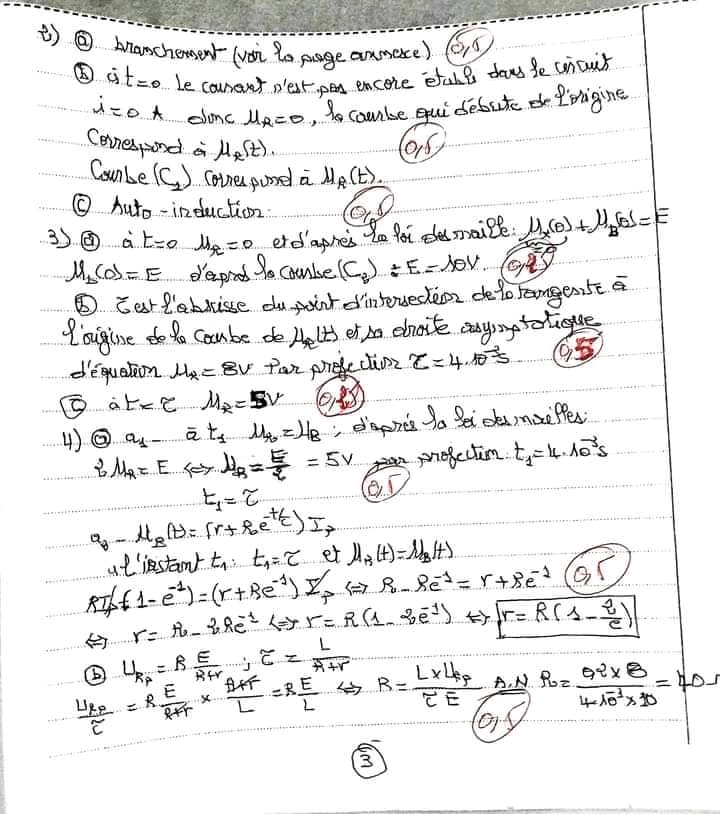 2) ⓐ branchement (voir la page annexe) 0,5
ⓑ à t=0 le courant n'est pas encore établi dans le circuit
i=0 A donc U_R=0, la courbe qui débute de l'origine
Correspond à U_R(t). 0,5
Courbe (C_1) correspond à U_R(t).
ⓒ Auto-induction. 0,5
3) ⓐ à t=0 U_R=0 et d'après la loi des maille: U_R(0)+U_B(0)=E
U_B(0)=E d'après la courbe (C_2) : E=10V. 0,25
ⓑ τ est l'abscisse du point d'intersection de la tangente à
l'origine de la courbe de U_R(t) et sa droite asymptotique
d'équation U_R=8V Par projection τ=4.10^-3s 0,5
ⓒ à t=τ U_R=5V 0,25
4) ⓐ a_1- à t_1 U_R=U_B ; d'après la loi des mailles:
2U_R=E ⇔ U_R=E/2=5V par projection: t_1=4.10^-3s
t_1=τ 0,5
a_2- U_B(t)=(r+Re^-t/τ)I_p
à l'instant t_1: t_1=τ et U_R(t)=U_B(t)
RI_p(1-e^-1)=(r+Re^-1)I_p ⇔ R-Re^-1=r+Re^-1 0,5
⇔ r=R-2Re^-1 ⇔ r=R(1-2e^-1) ⇔ r=R(1-2/e)
ⓑ U_Rp=R E/R+r ; τ=L/R+r
U_Rp/τ=R E/R+r × R+r/L=R E/L ⇔ R=L×U_Rp/τE A.N R=0,2×8/4.10^-3×10=40Ω
0,5
3